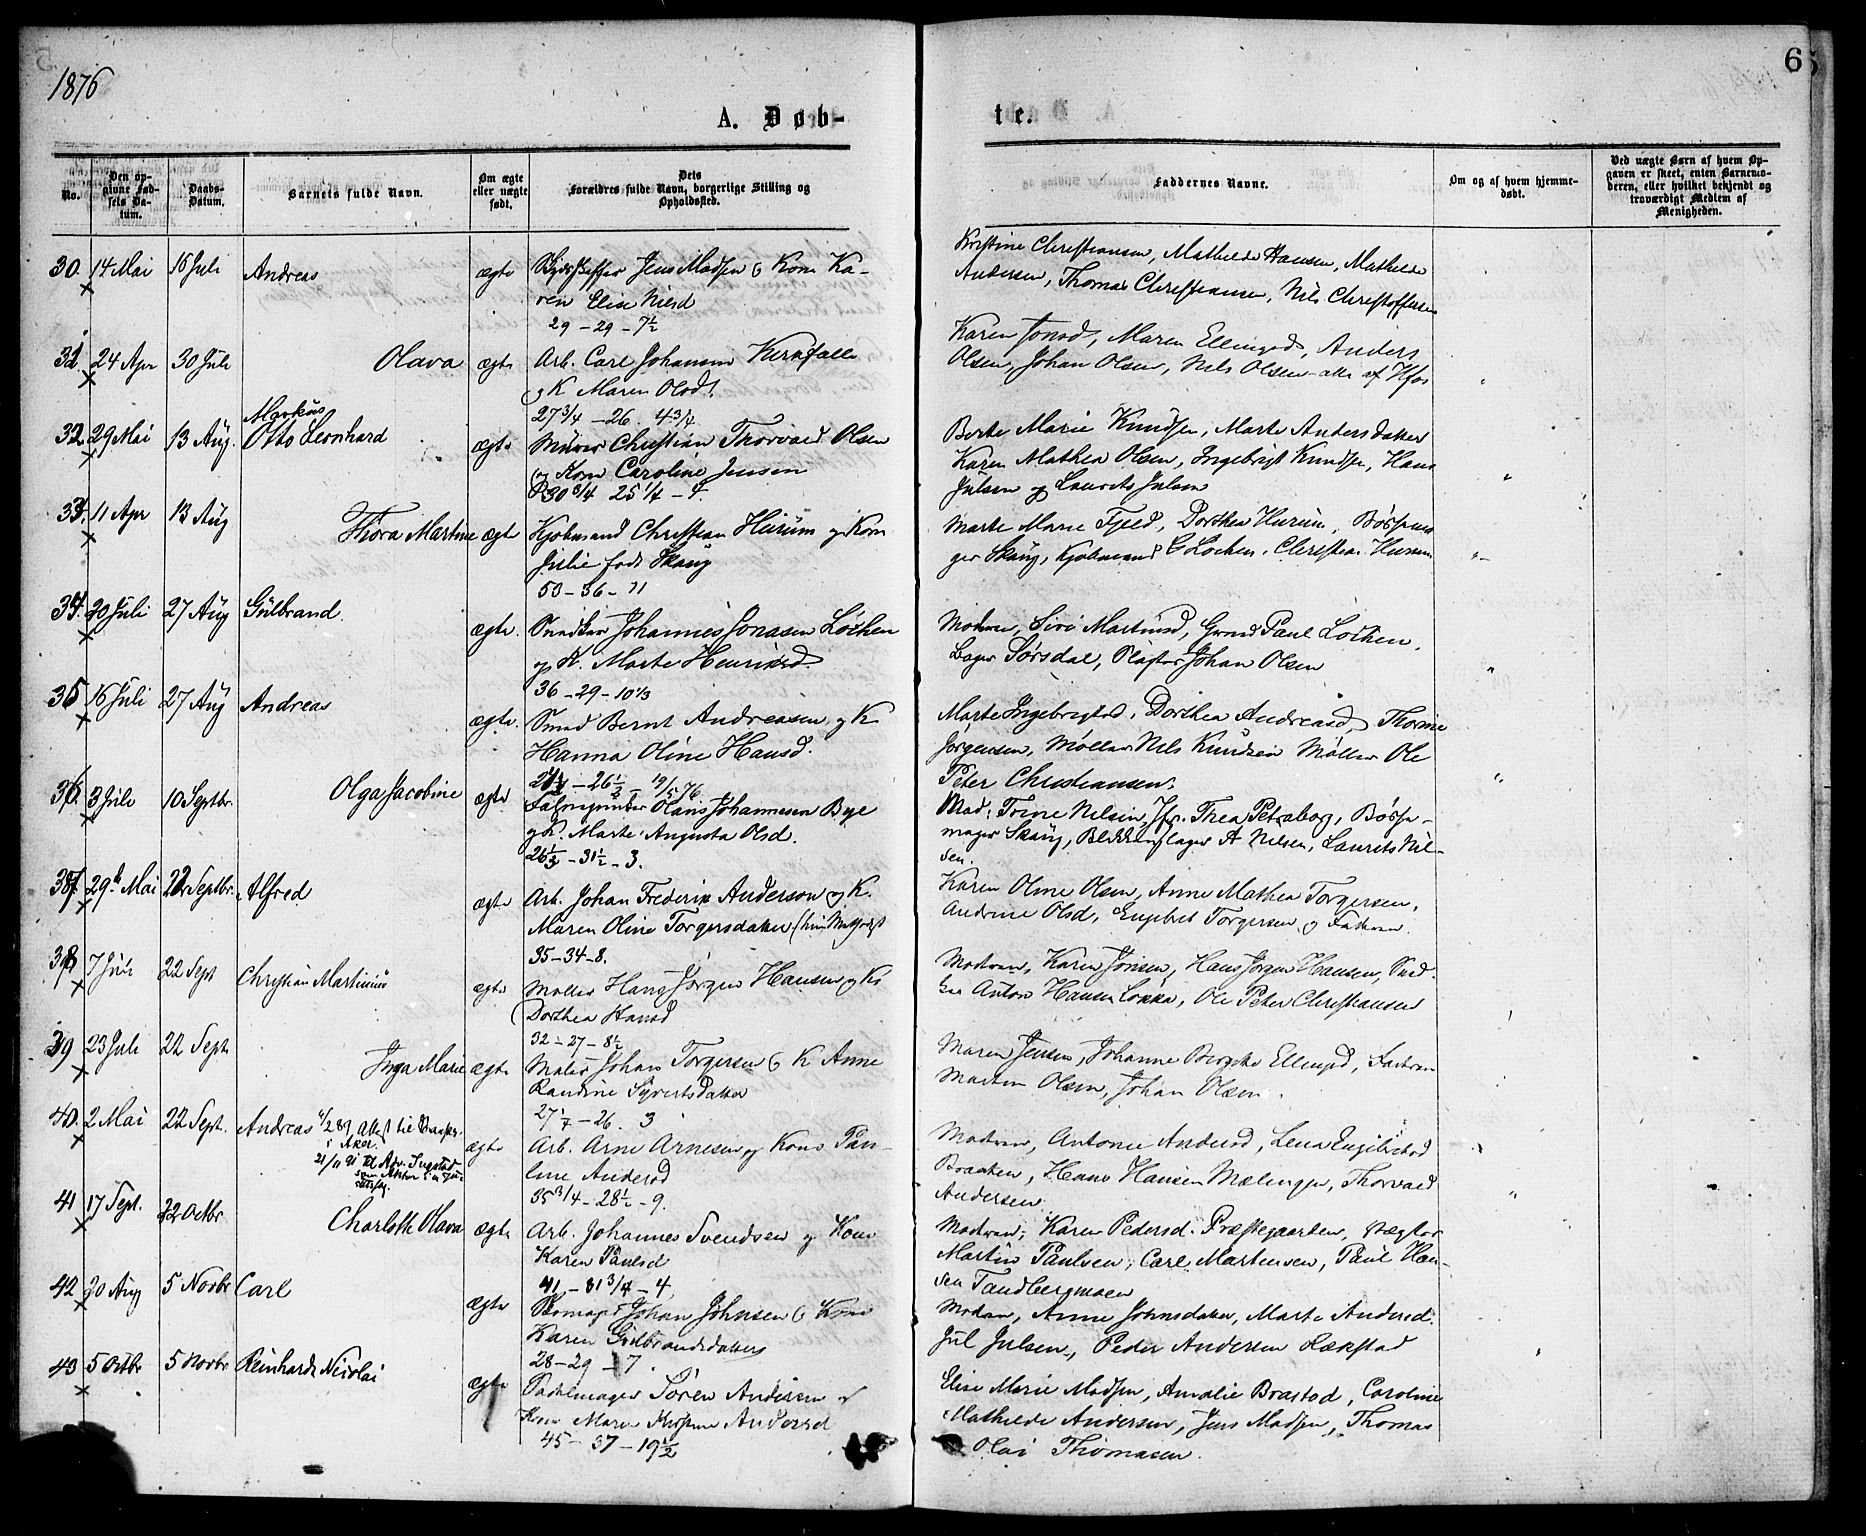 1876
6
A. Døb-
te.
No.
Den op-
givne Fød-
sels Da-
tum.
Daabs-
Datum.
Barnets fulde Navn.
Om ægte
eller uægte
født.
Dets
Forældres fulde Navn, borgerlige Stilling og
Opholdssted.
Faddernes Navne.
Om og af hvem hjemme-
døbt.
Ved uægte Børn af hvem Op-
gaven er skeet, enten Barnemo-
deren, eller hvilket bekjendt og
troværdigt Medlem af
Menigheden.
30. 14 Mai 16 Juli Andreas ægte Jens Madsen & Kone Ka-
ren Elise Nilsd
29 - 29 - 7½
Kristine Christiansen, Mathilde Hansen, Mathilde
Andersen, Thomas Christiansen, Nils Christoffersen
31 24 Apr 30 Juli Olava ægte Arb. Carl Johansen
og K Maren Olsd.
27 3/4 - 26. 4 3/4
Karen Jonsd, Maren Ellingsd, Anders
Olsen, Johan Olsen, Nils Olsen alle af Hfos
32. 29 Mai 13 Aug. Markus
Otto Leonhard ægte Murer Christian Thorvald Olsen
og Kone Caroline Jensen
30 3/4 25 1/4 - 4.
Berte Marie Knudsen, Marte Andersdatter
Karen Mathea Olsen, Ingebrigt Knudsen, Hans
Julsen og Laurits Julsen
33. 11 Apr 13 Aug Thora Martine ægte Kjøbmand Christian Hurum og Kone
Julie født Skaug
53 - 36 - 11
Marte Marie Dorthea Hurum,
ger Skaug, Kjøbmand Lochen, Christian Hurum
34. 20 Juli 27 Aug Gulbrand ægte. Snedker Johannes Jonasen Løchen
og K. Marte Henriksd.
36 - 29 - 10 1/3
Moderen, Siri Martinsd, Paul Lochen,
Bager Sørsdal, Johan Olsen
35 16 Juli 27 Aug Andreas ægte. Smed Bernt Andreasen og K
Hanna Oline Hansd.
- 26½ - 19/5 76
Marte Ingebrigtsd, Dorthea Andreasd, Thorine
Jørgensen, Møller Nils Knudsen Møller Ole
Peter Christiansen.
36. 3 Juli 10 Septbr. Olga Jacobine ægte Hans Johannesen Bye
og K. Marte Augusta Olsd.
26½ - 31½ - 3.
Mad: Trine Nelsen, Jfr. Thea Petraborg,
mager Skaug, A Nelsen, Laurits Nil-
sen.
37. 29 Mai 22 Septbr. Alfred ægte Arb. Johan Frederik Anderson og K.
Maren Oline Torgersdatter
35 - 34 - 8.
Karen Oline Olsen, Anne Mathea Torgersen,
Andrine Olsd, Engebret Torgersen og Faderen.
38 7 22 Sept Christian Martinius ægte Møller Hans Jørgen Hansen og K
Dorthea Hansd
32 - 27 - 8½
Moderen, Karen Jonsen, Hans Jørgen Hansen, Sned-
ker Anton Hansen Løkka, Ole Peter Christiansen
39 23 Juli 22 Sept. Inga Marie ægte Maler Johan Torgersen & K Anne
Randine Syvertsdatter
27 1/7 - 26. 3
Maren Jensen, Johanne Ellingsd, Faderen
Martin Olsen, Johan Olsen.
40. 2 Mai 22 Sept. Andreas 4/2 89 Attest til
i Aker.
21/11 91 til
ægte Arb. Arne Arnesen og Kone Pau-
line Andersd
35 3/4 - 28½ - 9.
Moderen, Antonie Andersd, Lena Engebretsd
Braaten, Hans Hansen Mælingen, Thorvald
Andersen
41 17 Sept. 22 Octbr Charlotte Olava ægte Arb. Johannes Svendsen og Kone
Karen Paulsd
41 - 31 3/4 - 4,
Moderen, Karen Pedersd. Præstegaarden,
Martin Paulsen, Carl Martinsen, Paul Han-
sen Tandbergmoen
42 20 Aug 5 Novbr Carl ægte Skomager Johan Johnsen & Kone
Karen Gulbrandsdatter
28 - 29 - 7.
Moderen, Anne Johnsdatter, Marte Andersd.
Jul Julsen, Peder Andersen Hækstad
43 5 Octbr 5 Novbr Reinhardt Nicolai ægte Søren Andersen &
Kone Maren Kristine Andersd
45 - 37 - 19½
Elise Marie Madsen, Amalie Brastad, Caroline
Mathilde Andersen, Jens Madsen, Thomas
Olai Thomasen.